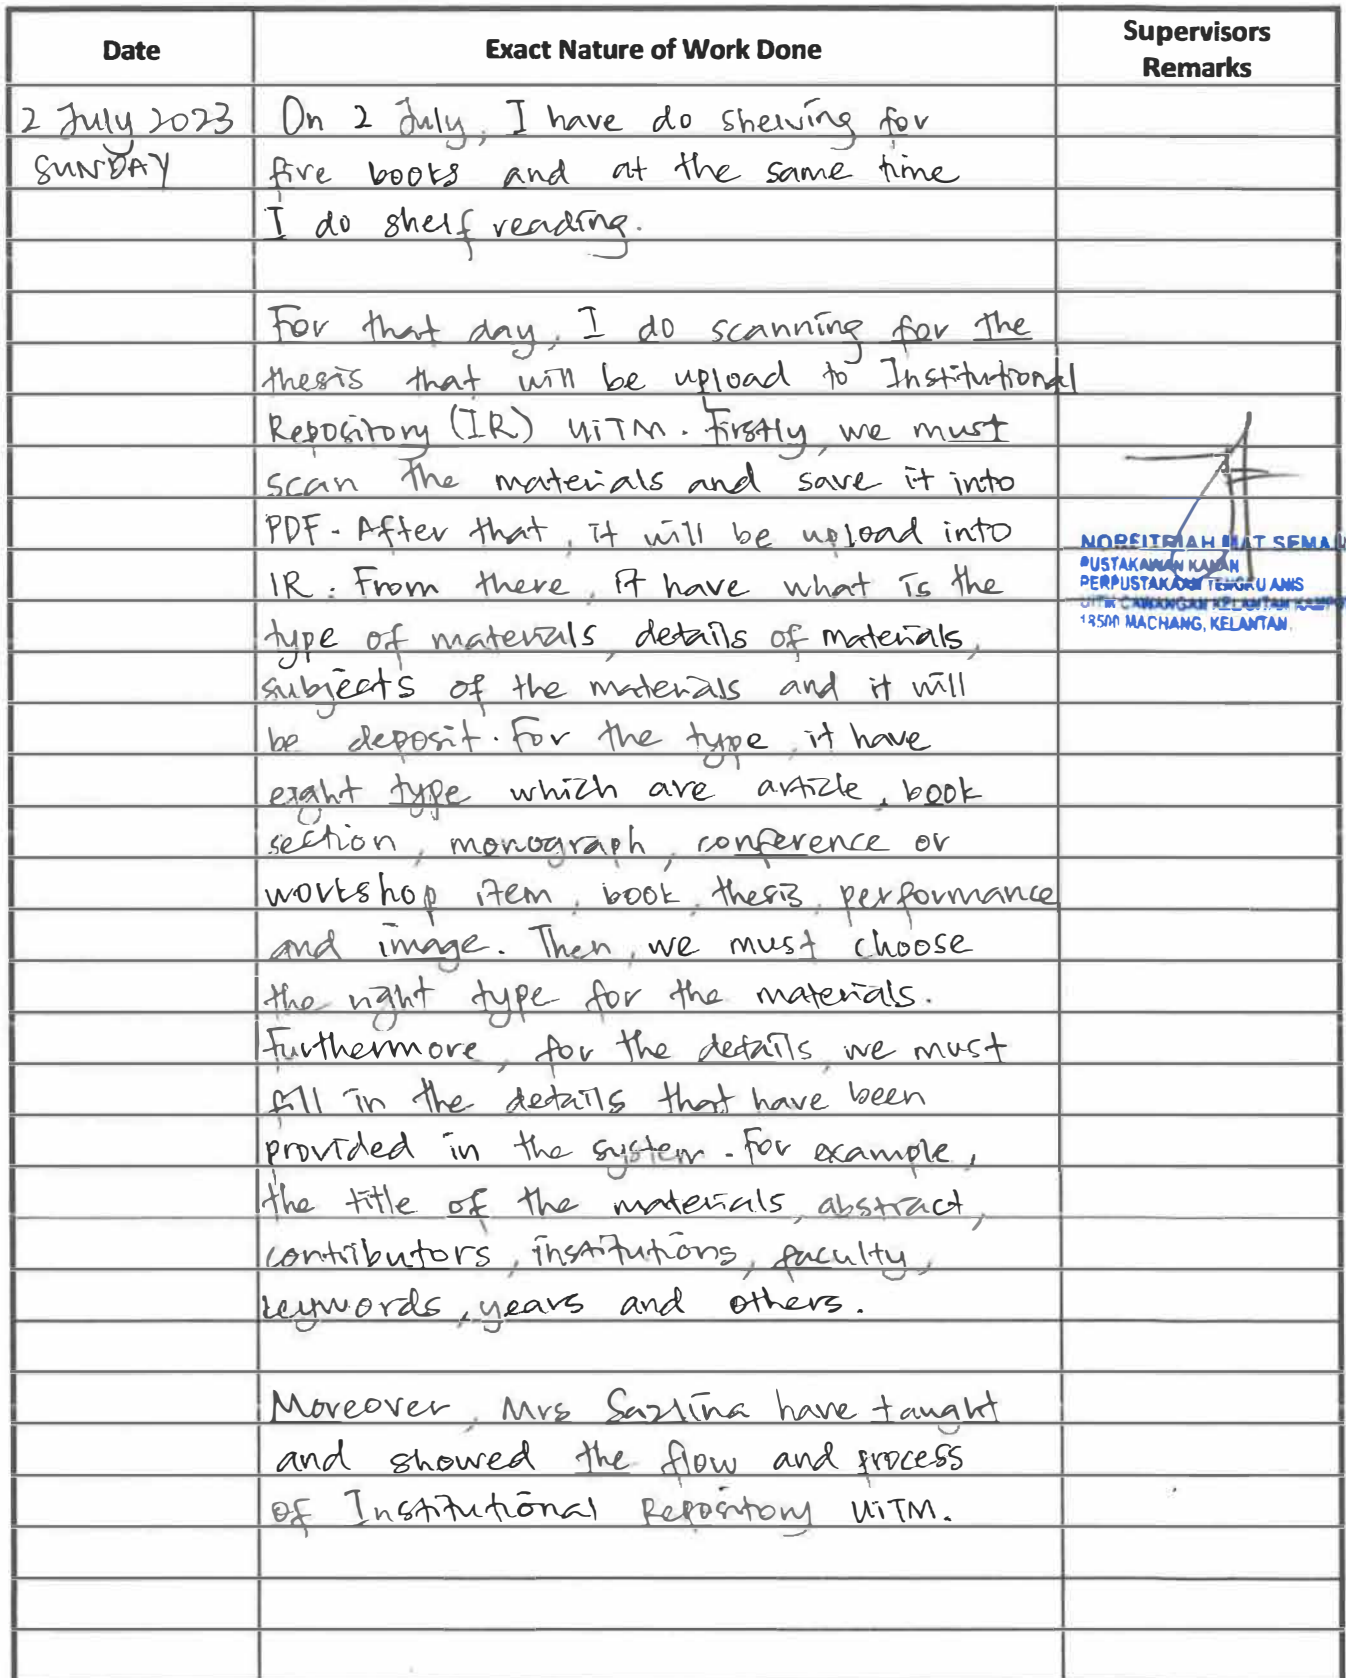 Date
Exact Nature of Work Done
Supervisors
Remarks
2 July 2023
SUNDAY
On 2 July, I have do shelving for
five books and at the same time
I do shelf reading.
For that day, I do scanning for the
thesis that will be upload to Institutional
Repository (IR) UiTM. Firstly, we must
scan the materials and save it into
PDF. After that, it will be upload into
IR. From there, it have what is the
type of materials, details of materials,
subjects of the materials and it will
be deposit. For the type, it have
eight type which are article, book
section, monograph, conference or
workshop item, book, thesis, performance
and image. Then, we must choose
the right type for the materials.
Furthermore, for the details, we must
fill in the details that have been
provided in the system. For example,
the title of the materials, abstract,
contributors, institutions, faculty,
keywords, years and others.
Moreover, Mrs Sazlina have taught
and showed the flow and process
of Institutional Repository UiTM.
MAT SEMA
PUSTAKAWAN KANAN
PERPUSTAKAAN TENGKU ANIS
UiTM CAWANGAN KELANTAN
18500 MACHANG, KELANTAN.